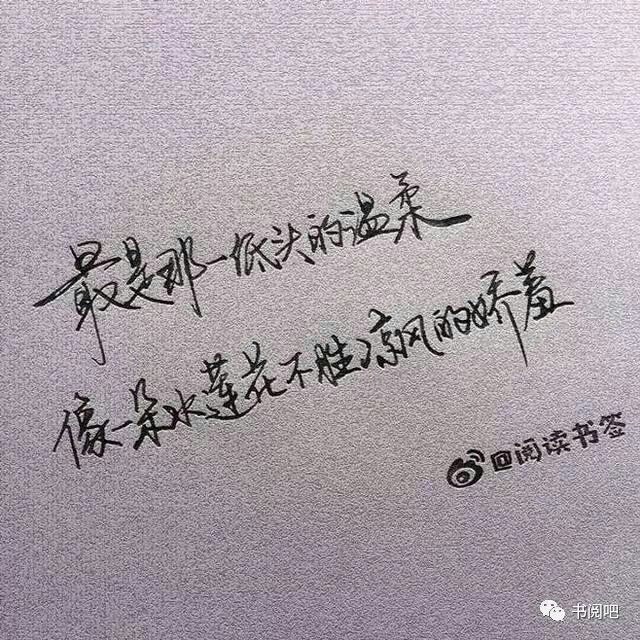 最是那一低头的温柔
像一朵水莲花不胜凉风的娇羞
@阅读书签
书阅吧